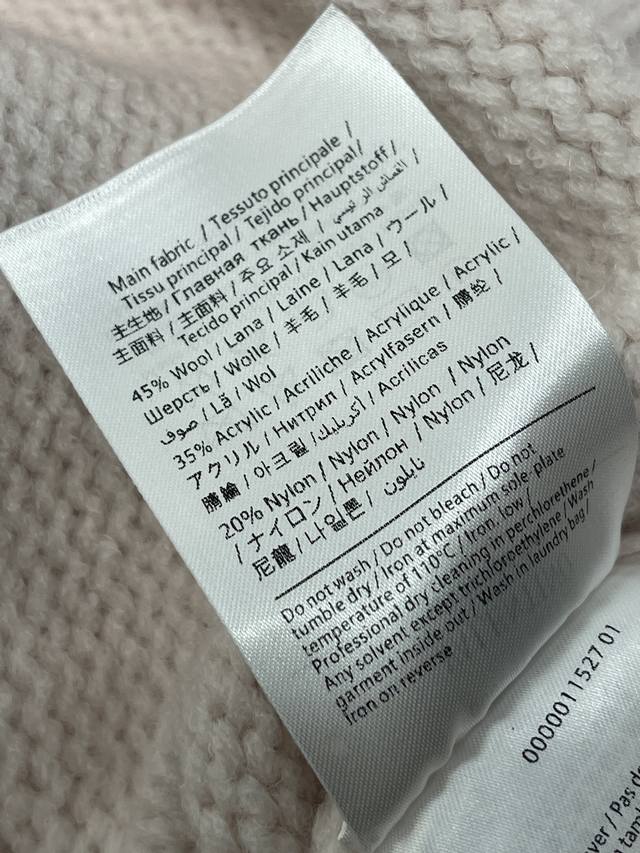 Main fabric / Tessuto principale /
Tissu principal / Tejido principal/
主生地 / Главная ткань / Hauptstoff /
主面料 / 主面料 / 주요 소재 / القماش الرئيسي /
Tecido principal / Kain utama
45% Wool / Lana / Laine / Lana / ウール /
Шерсть / Wolle / 羊毛 / 羊毛 / 모 /
صوف / Lã / Wol
35% Acrylic / Acriliche / Acrylique / Acrylic /
アクリル / Нитрил / Acrylfasern / 腈纶 /
腈綸 / 아크릴 / أكريليك / Acrilicas
20% Nylon / Nylon / Nylon / Nylon
/ ナイロン / Нейлон / Nylon / 尼龙 /
尼龍 / 나일론 / نايلون
Do not wash / Do not bleach / Do not
tumble dry / Iron at maximum sole-plate
temperature of 110°C / Iron, low /
Professional dry cleaning in perchlorethene /
Any solvent except trichloroethylene / Wash
garment inside out / Wash in laundry bag /
Iron on reverse
000001152701
ver / Pas de